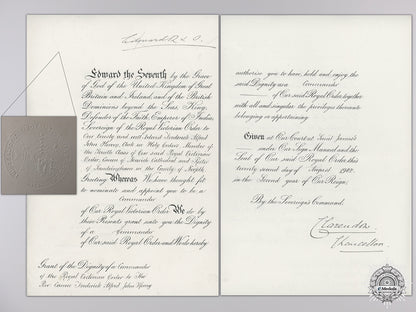 Edward R & I
Edward the Seventh by the Grace
of God of the United Kingdom of Great
Britain and Ireland, and of the British
Dominions beyond the Seas, King,
Defender of the Faith, Emperor of India,
Sovereign of the Royal Victorian Order to
Our trusty and well beloved Frederick Alfred
John Hervey, Clerk in Holy Orders, Member of
the Fourth Class of Our said Royal Victorian
Order, Canon of Norwich Cathedral and Rector
of Sandringham in the County of Norfolk
Greeting Whereas We have thought fit
to nominate and appoint you to be a
Commander
of Our Royal Victorian Order We do by
these Presents grant unto you the Dignity
of a Commander
of Our said Royal Order and We do hereby
Grant of the Dignity of a Commander
of the Royal Victorian Order to the
Rev Canon Frederick Alfred John Hervey
authorise you to have, hold and enjoy the
said Dignity as a Commander
of Our said Royal Order, together
with all and singular the privileges thereunto
belonging or appertaining
Given at Our Court at Saint James's
under Our Sign Manual and the
Seal of Our said Royal Order this
twenty second day of August 1902
in the Second Year of Our Reign
By the Sovereign's Command.
Clarendon
Chancellor